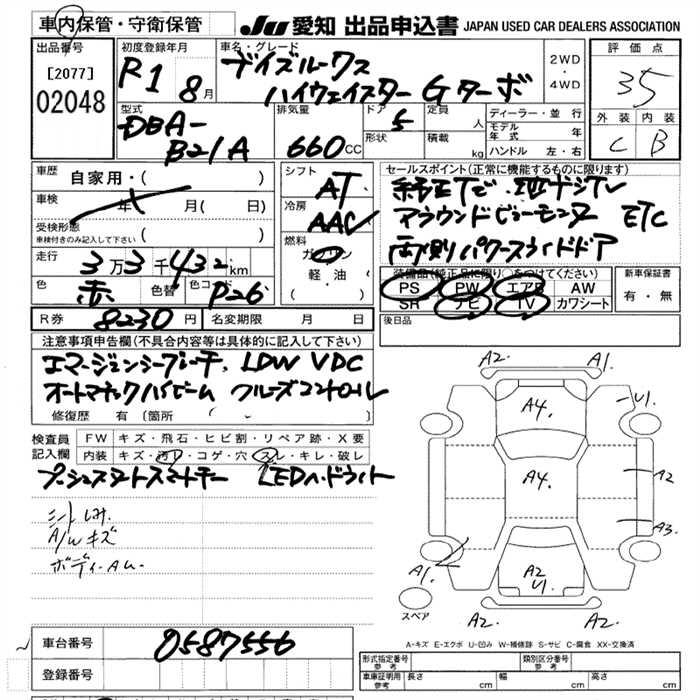 車内保管・守衛保管
JU 愛知 出品申込書 JAPAN USED CAR DEALERS ASSOCIATION
出品番号
[2077]
02048
初度登録年月
R1 8月
車名・グレード
デイズルークス
ハイウェイスター Gターボ
2WD
・
4WD
評価点
35
外装 内装
C B
型式
DBA-
B21A
排気量
660CC
ドア 5
形状
定員 人
積載 kg
ディーラー・並行
モデル年式 年
ハンドル 左・右
車歴
自家用・( )
車検
年 月( 日)
受検形態
車検付きのみ記入して下さい ( )
走行
3万3千432km
色 赤 色替 色コード P26
シフト
AT
冷房
AAC
燃料
ガソリン
軽油
( )
セールスポイント(正常に機能するものに限ります)
純正ナビ・地デジTV
アラウンドビューモニター ETC
両側パワースライドドア
装備品(純正品に限り○をつけてください)
PS PW エアB AW
SR ナビ TV カワシート
新車保証書
有・無
R券 8230円 名変期限 月 日
後日品
注意事項申告欄(不具合内容等は具体的に記入して下さい)
エマージェンシーブレーキ, LDW VDC
オートマチックハイビーム クルーズコントロール
修復歴 有〔箇所 〕
検査員記入欄
FW キズ・飛石・ヒビ割・リペア跡・X要
内装 キズ・汚レ・コゲ・穴・スレ・キレ・破レ
プッシュスタートスマートキー LEDヘッドライト
シートしみ
A/Wキズ
ボディ-AM-
A2. A1.
A4. U1
A4. A2
A3.
A1. A2
U1.
スペア A2. A2.
A-キズ E-エクボ U-凹み W-補修跡 S-サビ C-腐食 XX-交換済
車台番号 0587556
登録番号
形式指定番号 参考
類別区分番号 参考
車庫証明用 参考 長さ cm 幅 cm 高さ cm